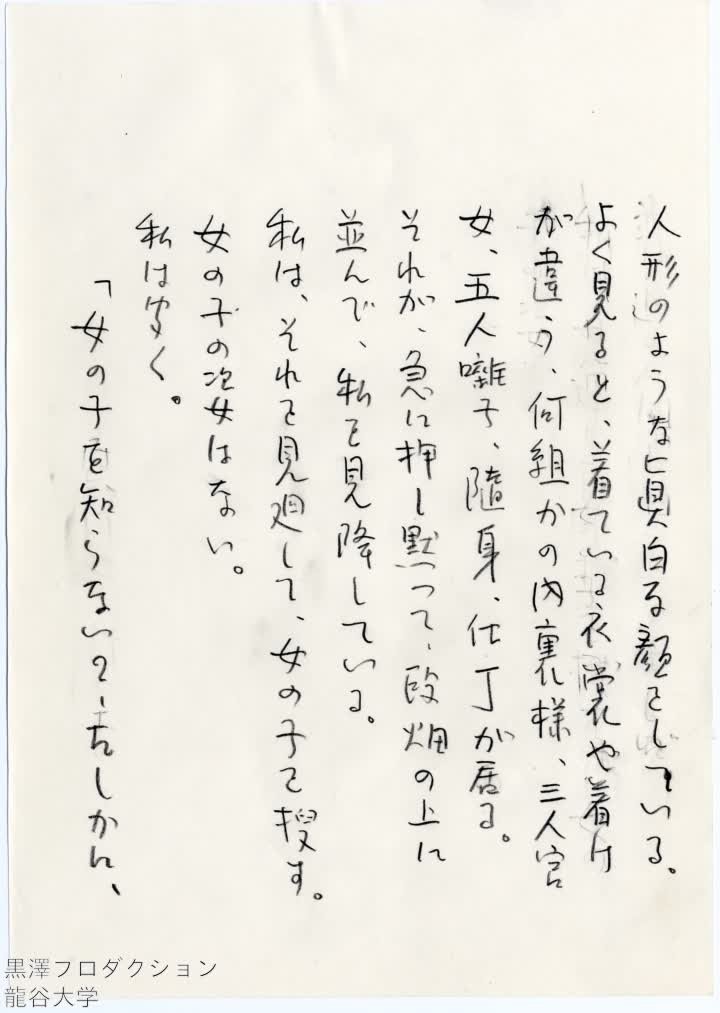 人形のような真白な顔をしている。
よく見ると、着ている衣裳や着け
が違う、何組かの内裏様、三人官
女、五人囃子、随身、仕丁が居る。
それが、急に押し黙って、段畑の上に
並んで、私を見降している。
私は、それを見廻して、女の子を捜す。
女の子の姿はない。
私は聞く。
「女の子を知らない？、たしかに、
黒澤プロダクション
龍谷大学